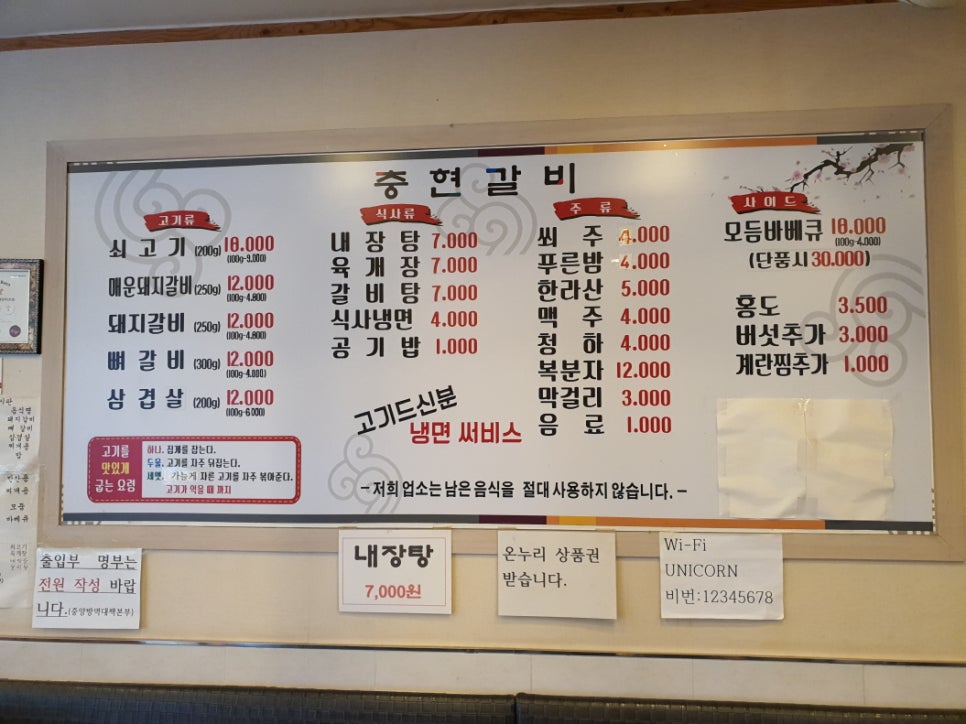 충현갈비
고기류
쇠고기 (200g) 18.000
(100g-9.000)
매운돼지갈비 (250g) 12.000
(100g-4.800)
돼지갈비 (250g) 12.000
(100g-4.800)
뼈갈비 (300g) 12.000
(100g-4.000)
삼겹살 (200g) 12.000
(100g-6.000)
고기를 맛있게 굽는 요령
하나. 집게를 잡는다.
두울. 고기를 자주 뒤집는다.
세엣. 가늘게 자른 고기를 자주 볶아준다.
고기가 익을 때 까지
식사류
내장탕 7.000
육개장 7.000
갈비탕 7.000
식사냉면 4.000
공기밥 1.000
고기드신분
냉면 써비스
주류
쐬주 4.000
푸른밤 4.000
한라산 5.000
맥주 4.000
청하 4.000
복분자 12.000
막걸리 3.000
음료 1.000
사이드
모듬바베큐 18.000
(100g-4.000)
(단품시 30.000)
홍도 3.500
버섯추가 3.000
계란찜추가 1.000
- 저희 업소는 남은 음식을 절대 사용하지 않습니다. -
출입부 명부는
전원 작성 바랍
니다.(중앙방역대책본부)
내장탕
7,000원
온누리 상품권
받습니다.
Wi-Fi
UNICORN
비번:12345678